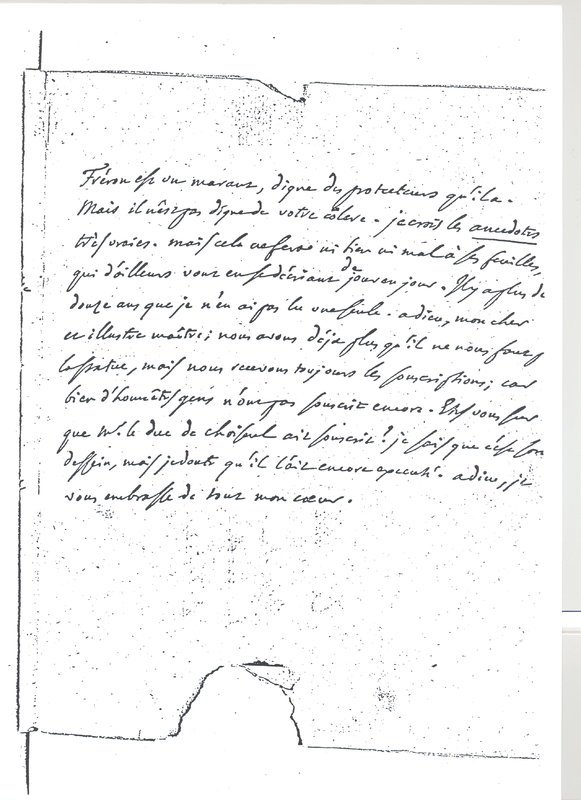 Fréron est un maraut, digne des protecteurs qu'il a.
Mais il n'est pas digne de votre colere. je crois les anecdotes
très vraies. mais cela ne fera ni bien ni mal à ses feuilles,
qui d'ailleurs vont en se décriant de jour en jour. Il y a plus de
douze ans que je n'en ai pas lu une seule. adieu, mon cher
et illustre maître; nous avons déja plus qu'il ne nous faut pr
la statue, mais nous recevons toujours les souscriptions; car
bien d'honnêtes gens n'ont pas souscrit encore. Etes vous sur
que Mr. le duc de choiseul ait souscrit? je sais que c'est son
dessein, mais je doute qu'il l'ait encore executé. adieu, je
vous embrasse de tout mon cœur.